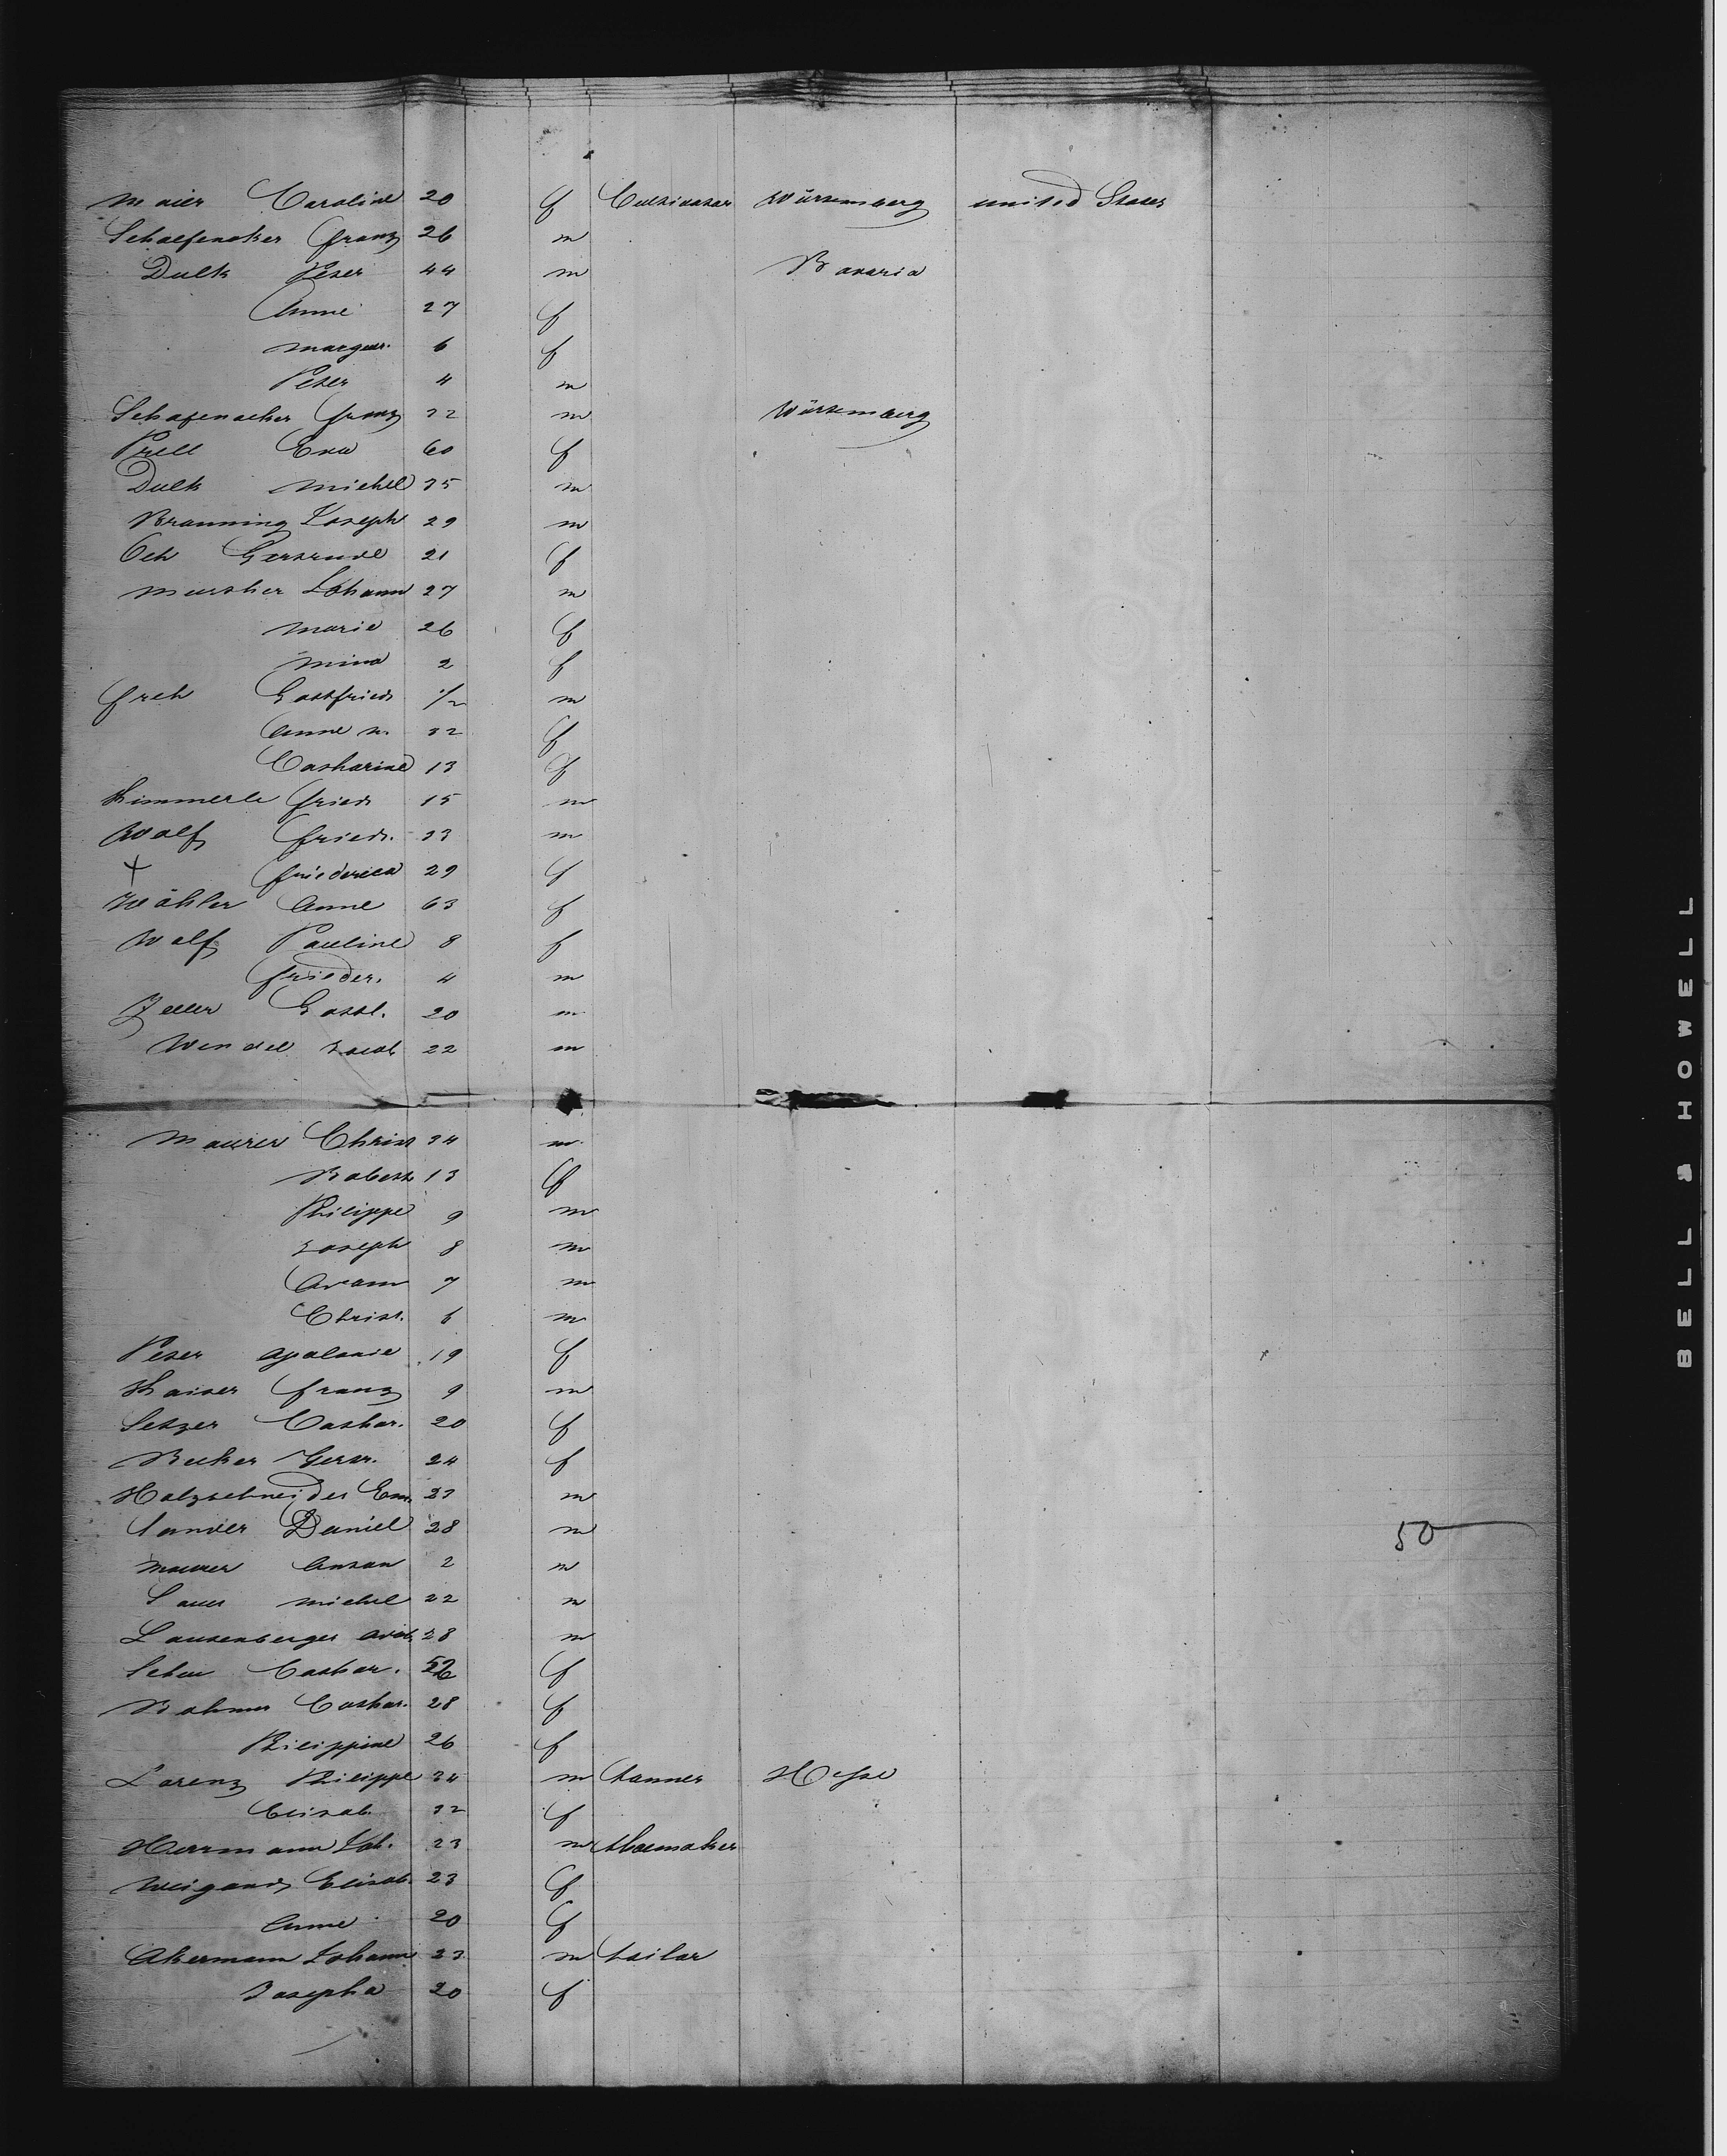 Maier Caroline 20 f Cultivator Würtemberg united States
Schaefenaker Franz 26 m
Dulk Peter 44 m Bavaria
Anne 27 f
Margar. 6 f
Peter 4 m
Schafenacker Franz 32 m Würtemberg
Prell Eva 60 f
Dulk Michel 35 m
Braunning Joseph 29 m
Och Gertrude 21 f
Johann 27 m
Marie 26 f
Mina 2 f
Frch Gottfried 1/2 m
Anne M. 32 f
Catharine 13 f
Kimmerle Fried 15 m
Wolf Fried. 33 m
Friederica 29 f
Wähler Anne 63 f
Wolf Pauline 8 f
Frieder. 4 m
Zeller Gottl. 20 m
Wendel Jacob 22 m
Maurer Christ 34 m
Babett 13 f
Philippe 9 m
Joseph 8 m
Adam 7 m
Christ. 6 m
Peter Apolonie 19 f
Kaiser Franz 9 m
Setzer Cathar. 20 f
Becker Gertr. 24 f
Holzschneider Em. 23 m
Sander Daniel 28 m 50
Maurer Anton 2 m
Sauer Michel 22 m
Lautenberger 28 m
Scheu Cathar. f
Bohmer Cathar. 28 f
Philippine 26 f
Lorenz Philippe 34 m tanner Hesse
Elisab. 32 f
Herrmann Joh. 23 m shoemaker
Weigand Elisab. 23 f
Anne 20 f
Akermann Johann 23 m tailor
Josepha 20 f
BELL & HOWELL